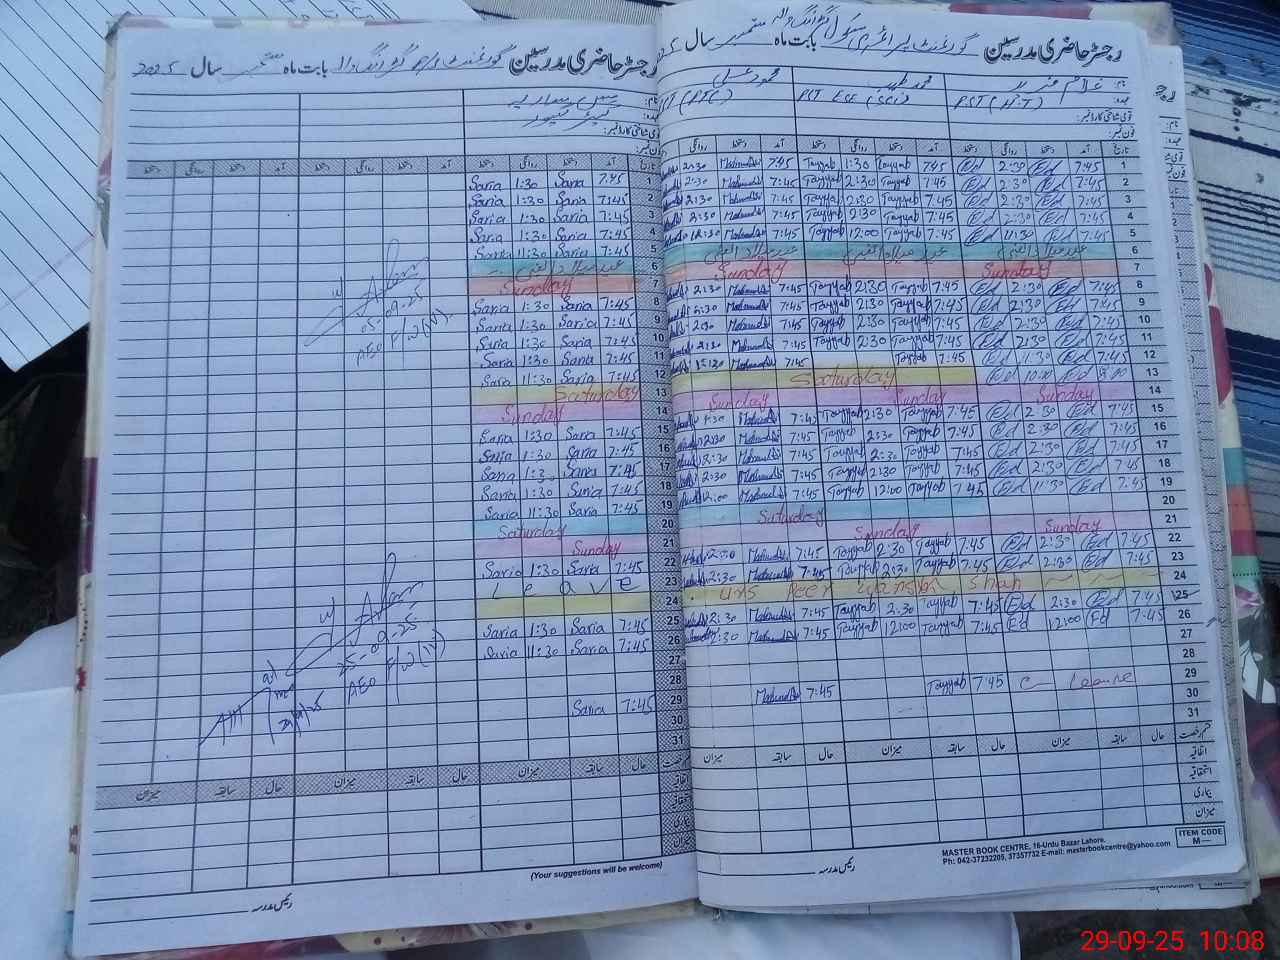 رجسٹر حاضری مدرسین گورنمنٹ پرائمری سکول بابت ماہ ستمبر سال 2025
نام: غلام فرید محمد طیب محمود علی
عہدہ: PST (H.T) PST ESE (Sci) PST (PTC)
قومی شناختی کارڈ نمبر:
فون نمبر:
تاریخ آمد دستخط روانگی دستخط آمد دستخط روانگی دستخط آمد دستخط روانگی
1 7:45 Ed 2:30 Ed 7:45 Tayyab 1:30 Tayyab 7:45 Mahmood 2:30
2 7:45 Ed 2:30 Ed 7:45 Tayyab 2:30 Tayyab 7:45 Mahmood 2:30
3 7:45 Ed 2:30 Ed 7:45 Tayyab 2:30 Tayyab 7:45 Mahmood 2:30
4 7:45 Ed 2:30 Ed 7:45 Tayyab 2:30 Tayyab 7:45 Mahmood 2:30
5 7:45 Ed 11:30 Ed 7:45 Tayyab 12:00 Tayyab 7:45 Mahmood 12:30
6 عید میلاد النبی عید میلاد النبی عید میلاد النبی
7 Sunday Sunday
8 7:45 Ed 2:30 Ed 7:45 Tayyab 2:30 Tayyab 7:45 Mahmood 2:30
9 7:45 Ed 2:30 Ed 7:45 Tayyab 2:30 Tayyab 7:45 Mahmood 2:30
10 7:45 Ed 2:30 Ed 7:45 Tayyab 2:30 Tayyab 7:45 Mahmood 2:30
11 7:45 Ed 2:30 Ed 7:45 Tayyab 2:30 Tayyab 7:45 Mahmood 2:30
12 7:45 Ed 11:30 Ed 7:45 Tayyab 7:45 Mahmood
13 8:00 Ed 10:00 Ed Saturday
14 Sunday Sunday Sunday
15 7:45 Ed 2:30 Ed 7:45 Tayyab 2:30 Tayyab 7:45 Mahmood
16 7:45 Ed 2:30 Ed 7:45 Tayyab 2:30 Tayyab 7:45 Mahmood 2:30
17 7:45 Ed 2:30 Ed 7:45 Tayyab 2:30 Tayyab 7:45 Mahmood 2:30
18 7:45 Ed 2:30 Ed 7:45 Tayyab 2:30 Tayyab 7:45 Mahmood 2:30
19 7:45 Ed 11:30 Ed 7:45 Tayyab 12:00 Tayyab 7:45 Mahmood 12:00
20 Saturday
21 Sunday Sunday
22 7:45 Ed 2:30 Ed 7:45 Tayyab 2:30 Tayyab 7:45 Mahmood
23 7:45 Ed 2:30 Ed 7:45 Tayyab 2:30 Tayyab 7:45 Mahmood 2:30
24 Urs Peer Waris Shah
25 7:45 Ed 2:30 Ed 7:45 Tayyab 2:30 Tayyab 7:45 Mahmood 2:30
26 Ed 12:00 Ed 7:45 Tayyab 12:00 Tayyab 7:45 Mahmood 2:30
27
28
29 C Leave 7:45 Tayyab 7:45 Mahmood
30
31
قسم رخصت حال سابقہ میزان حال سابقہ میزان حال سابقہ میزان
اتفاقیہ
استحقاقیہ
بیماری
میزان
رئیس مدرسہ
MASTER BOOK CENTRE, 16-Urdu Bazar Lahore.
Ph: 042-37232205, 37357732 E-mail: masterbookcentre@yahoo.com
ITEM CODE
M—
رجسٹر حاضری مدرسین گورنمنٹ بابت ماہ ستمبر سال 2025
نام: مس ساریہ
عہدہ:
قومی شناختی کارڈ نمبر:
فون نمبر:
تاریخ آمد دستخط روانگی دستخط آمد دستخط روانگی دستخط آمد دستخط روانگی دستخط
1 7:45 Saria 1:30 Saria
2 7:45 Saria 1:30 Saria
3 7:45 Saria 1:30 Saria
4 7:45 Saria 1:30 Saria
5 7:45 Saria 11:30 Saria
6 عید میلاد النبی
7 Sunday
8 7:45 Saria 1:30 Saria
9 7:45 Saria 1:30 Saria
10 7:45 Saria 1:30 Saria
11 7:45 Saria 1:30 Saria
12 7:45 Saria 11:30 Saria
13 Saturday
14 Sunday
15 7:45 Saria 1:30 Saria
16 7:45 Saria 1:30 Saria
17 7:45 Saria 1:30 Saria
18 7:45 Saria 1:30 Saria
19 7:45 Saria 11:30 Saria
20 Saturday
21 Sunday
22 7:45 Saria 1:30 Saria
23 Leave
24
25 7:45 Saria 1:30 Saria
26 7:45 Saria 11:30 Saria
27
28
29 7:45 Saria
30
31
05-09-25
AEO F/W (IV).
25-09-25
AEO F/W (IV)
29/9/25
قسم رخصت حال سابقہ میزان حال سابقہ میزان حال سابقہ میزان
اتفاقیہ
استحقاقیہ
بیماری
میزان
(Your suggestions will be welcome)
رئیس مدرسہ
29-09-25 10:08